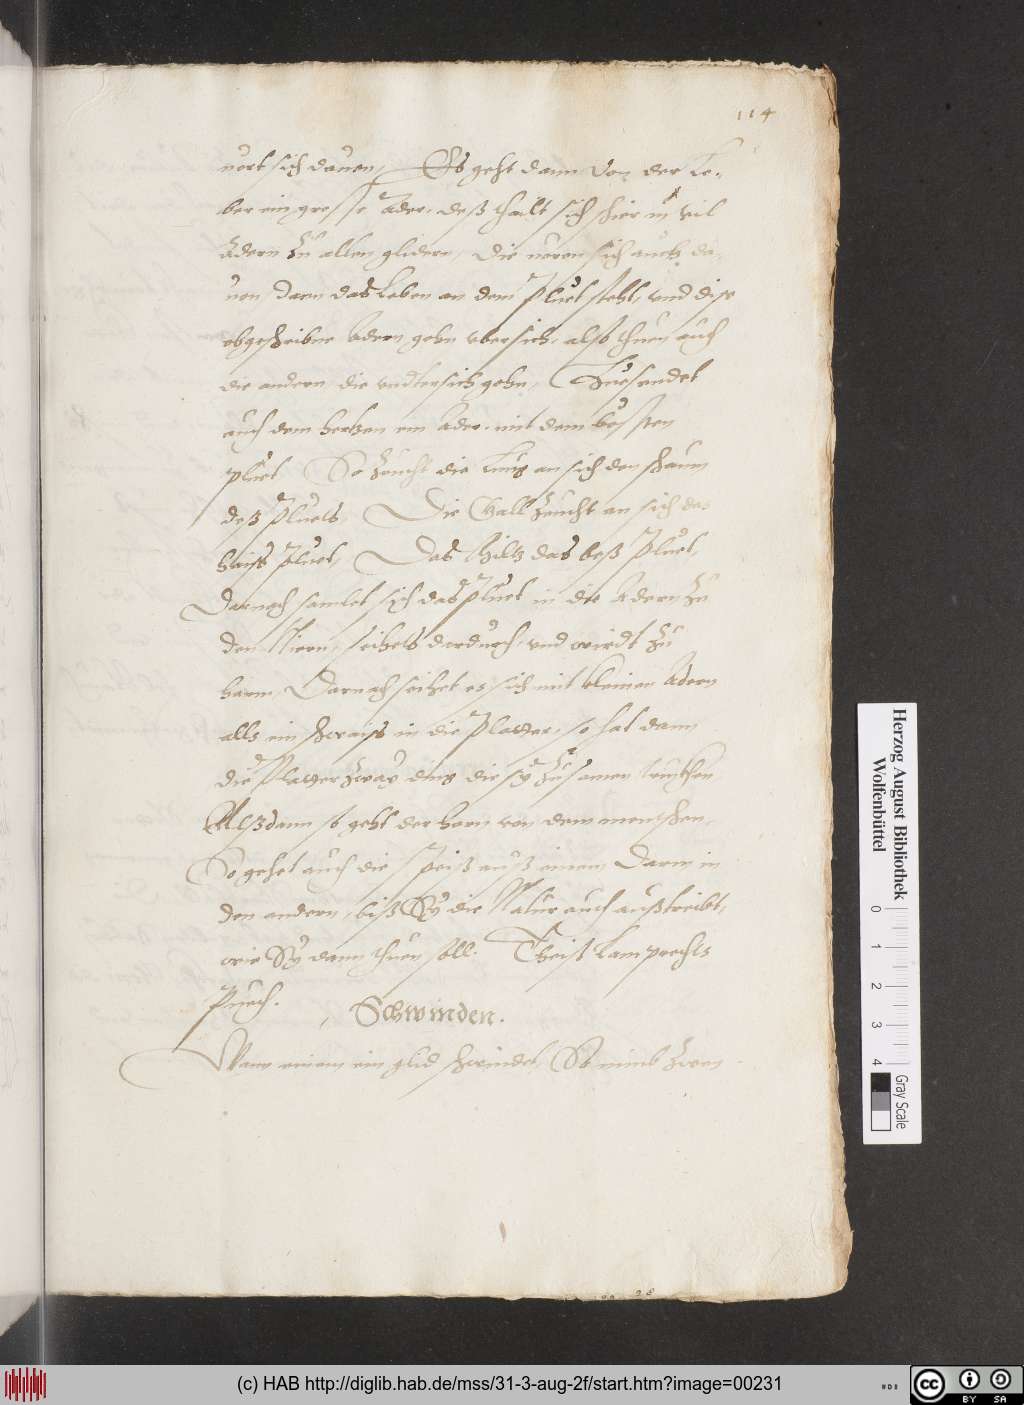 114
nert sich dauon, Es geht dann von der Le¬
ber ein grosse Ader, deß thailt sich hier in vil
Adern zu allen glidern, die neren sich auch da¬
uon, dann das Leben an dem pluet steht, vnd dise
obgeschribne Adern gehn vbersich, also thuen auch
die andern die vndtersich gehn,
auch dem hertzen ein Ader, mit dem besten
pluet So zeucht die Lung an sich den schaum
deß pluets, Die Gall zeucht an sich das
haiss pluet, Das Miltz das beß pluet,
Darnach samlet sich das pluet in die Adern zu
den Niern, seihets dardurch, vnd wirdt zu
harm, Darnach seihet es sich mit kleinen Adern
alls ein schwaiss in die Platter, so hat dann
die Platter zway ding die sy zusamen truckhen
Alßdann so geht der harn von dem menschen,
So gehet auch die speiß auß einem Darm in
den andern, biß Sy die Natur auch außtreibt,
wie Sy dann thuen soll. Lamprechts
Puech.
Schwinden.
Wann ainem ein glid schwindet, So nimb zwen
Herzog August Bibliothek
Wolfenbüttel
0 1 2 3 4
Gray Scale
(c) HAB http://diglib.hab.de/mss/31-3-aug-2f/start.htm?image=00231
cc BY SA